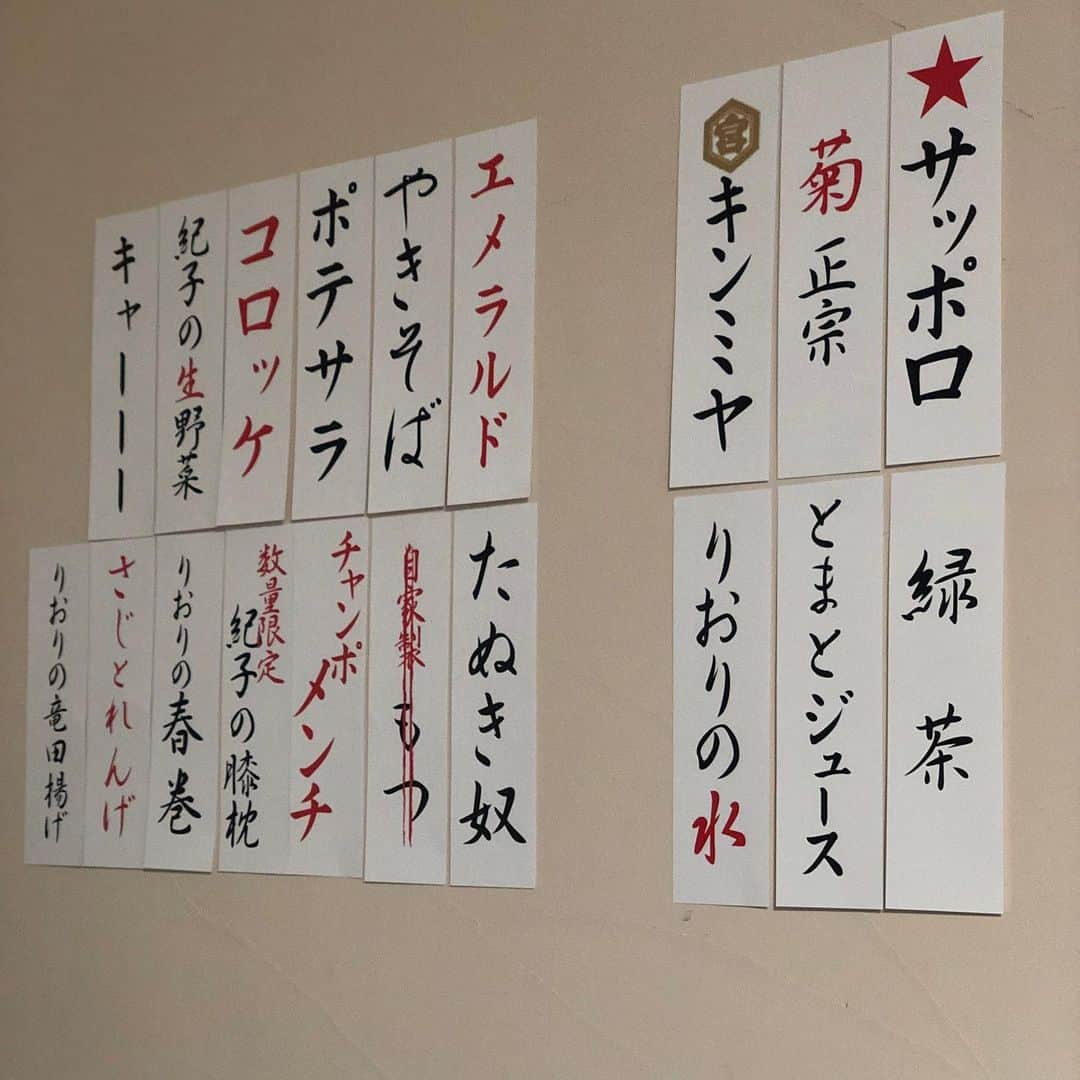 ★サッポロ
菊正宗
宮キンミヤ
緑茶
とまとジュース
りおりの水
エメラルド
やきそば
ポテサラ
コロッケ
紀子の生野菜
キャーーー
たぬき奴
自家製もつ
チャンポ
メンチ
数量限定
紀子の膝枕
りおりの春巻
さじとれんげ
りおりの竜田揚げ